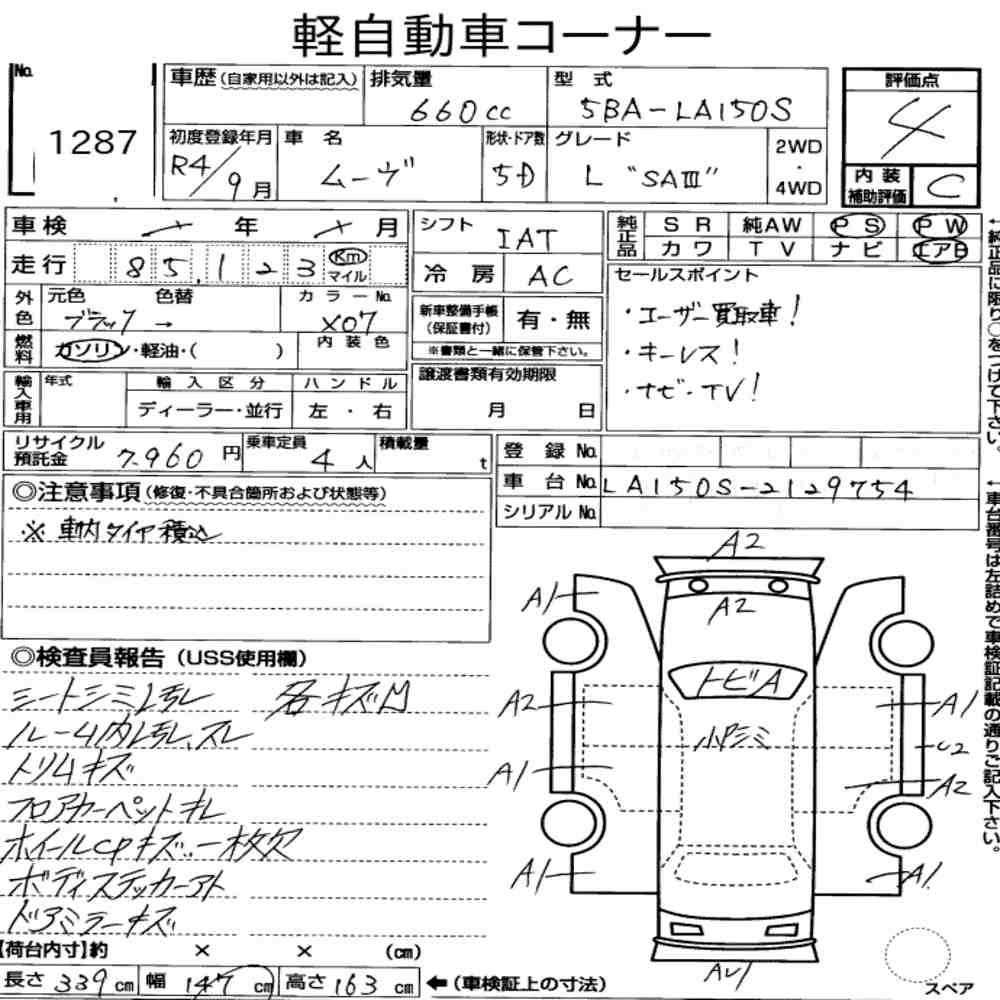 軽自動車コーナー
No.
1287
車歴(自家用以外は記入)
排気量
660cc
型式
5BA-LA150S
評価点
4
内装補助評価
C
初度登録年月
R4/9月
車名
ムーヴ
形状・ドア数
5D
グレード
L "SAⅢ"
2WD・4WD
車検 年 月
走行 85,123 Km マイル
外色
元色 色替
ブラック →
カラーNo.
X07
燃料
ガソリン・軽油・( )
内装色
輸入車用
年式
輸入区分
ディーラー・並行
ハンドル
左・右
シフト
IAT
冷房
AC
新車整備手帳(保証書付)
有・無
※書類と一緒に保管下さい。
譲渡書類有効期限
月 日
純正品
SR 純AW PS PW
カワ TV ナビ エアB
セールスポイント
・ユーザー買取車!
・キーレス!
・ナビ・TV!
←純正品に限り○をつけて下さい。
リサイクル預託金
7.960円
乗車定員
4人
積載量
t
登録No.
車台No.
LA150S-2129754
シリアルNo.
←車台番号は左詰めで車検証記載の通りご記入下さい。
◎注意事項(修復・不具合箇所および状態等)
※ 車内タイヤ積込
◎検査員報告(USS使用欄)
シートシミ 各キズM
トリムキズ
フロアカーペットキレ
ホイールCPキズ、一枚欠
ボディステッカーアト
ドアミラーキズ
A2
A1
A2
トビA
A2
A1
小Pシミ
U2
A2
A1
A1
A1
スペア
【荷台内寸】約 × × (cm)
長さ 339cm 幅 147cm 高さ 163cm
←(車検証上の寸法)